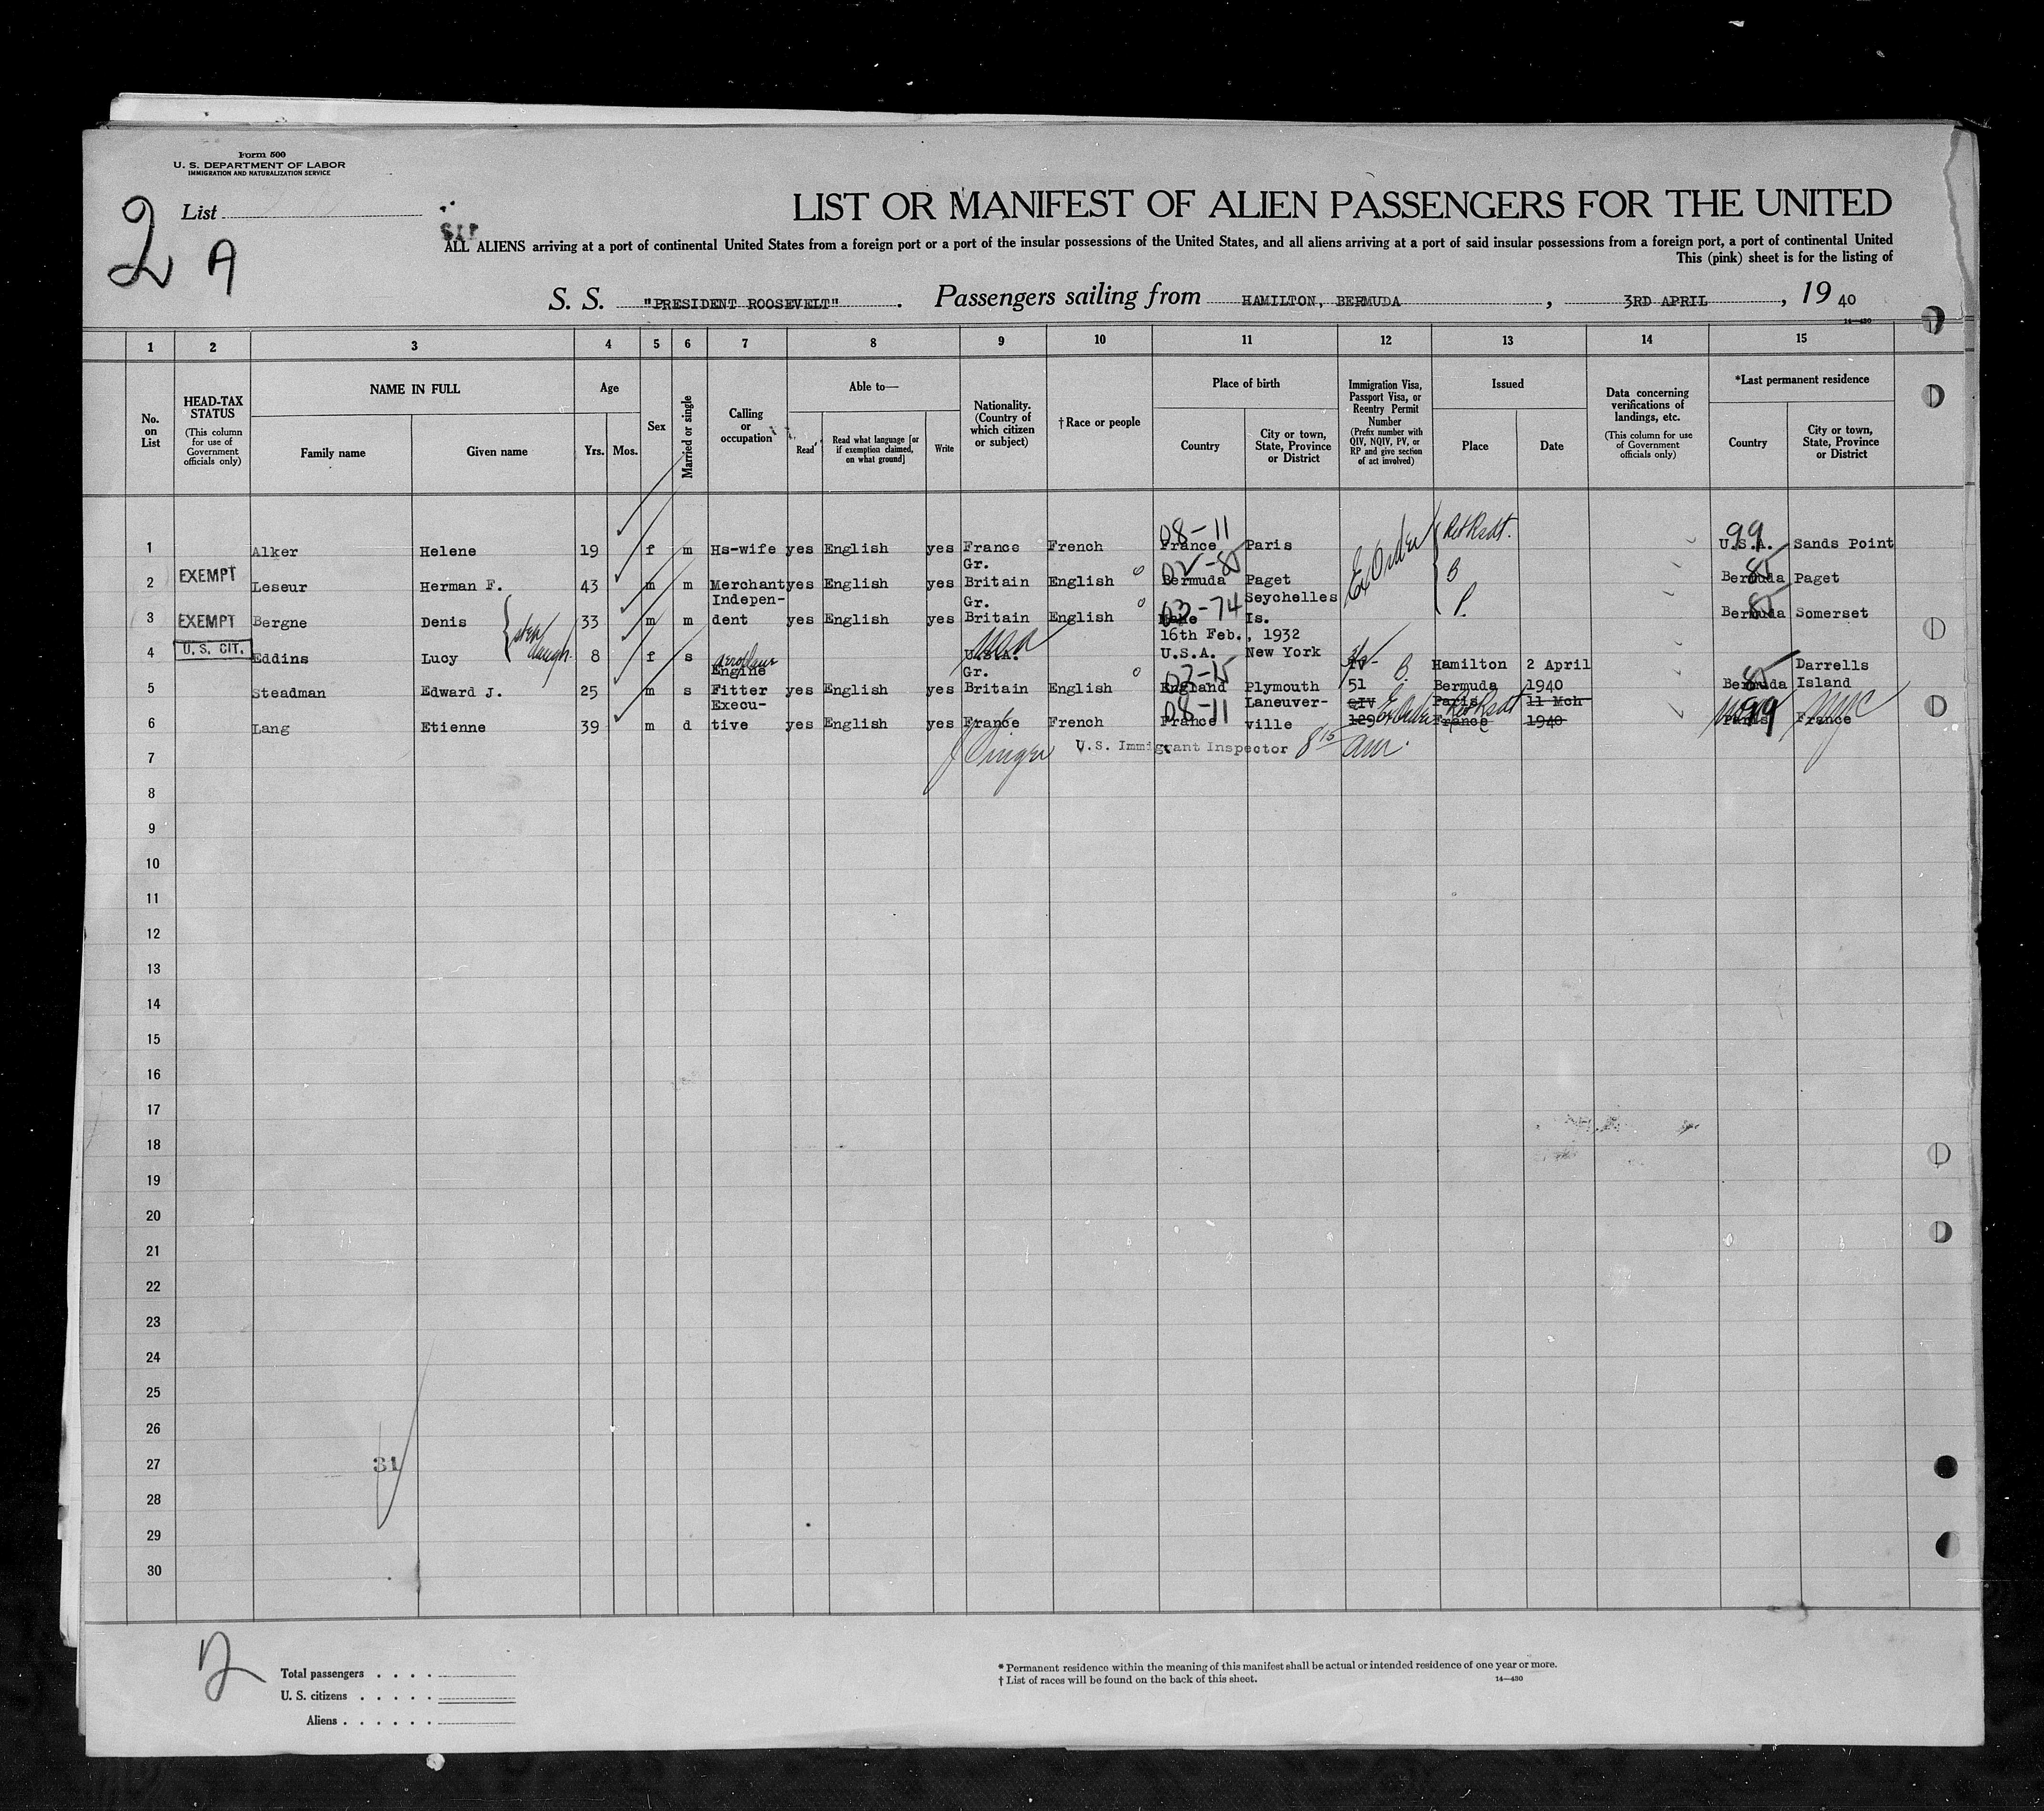 Form 500
U. S. DEPARTMENT OF LABOR
IMMIGRATION AND NATURALIZATION SERVICE
2 A
List
LIST OR MANIFEST OF ALIEN PASSENGERS FOR THE UNITED
ALL ALIENS arriving at a port of continental United States from a foreign port or a port of the insular possessions of the United States, and all aliens arriving at a port of said insular possessions from a foreign port, a port of continental United
This (pink) sheet is for the listing of
S. S. "PRESIDENT ROOSEVELT". Passengers sailing from HAMILTON, BERMUDA, 3RD APRIL, 19 40
14—430
1 2 3 4 5 6 7 8 9 10 11 12 13 14 15
No. on List
HEAD-TAX STATUS
(This column for use of Government officials only)
NAME IN FULL
Family name
Given name
Age
Yrs. Mos.
Sex
Married or single
Calling or occupation
Able to—
Read
Read what language [or if exemption claimed, on what ground]
Write
Nationality. (Country of which citizen or subject)
† Race or people
Place of birth
Country
City or town, State, Province or District
Immigration Visa, Passport Visa, or Reentry Permit Number
(Prefix number with QIV, NQIV, PV, or RP and give section of act involved)
Issued
Place
Date
Data concerning verifications of landings, etc.
(This column for use of Government officials only)
*Last permanent residence
Country
City or town, State, Province or District
1 Alker Helene 19 f m Hs-wife yes English yes France French 08-11 France Paris Ex Order 99 U.S.A. Sands Point
2 EXEMPT Leseur Herman F. 43 m m Merchant yes English yes Gr. Britain English 02-85 Bermuda Paget B 85 Bermuda Paget
3 EXEMPT Bergne Denis 33 m m Indepen-dent yes English yes Gr. Britain English 03-74 Seychelles Is. P. 85 Bermuda Somerset
step daugh.
16th Feb., 1932
4 U. S. CIT. Eddins Lucy 8 f s U.S.A. U.S.A. New York
5 Steadman Edward J. 25 m s aeroplane Engine Fitter yes English yes Gr. Britain English 02-15 England Plymouth 51 Hamilton Bermuda 2 April 1940 85 Bermuda Darrells Island
6 Lang Etienne 39 m d Execu-tive yes English yes France French 08-11 France Laneuver-ville QIV 129 Ex Order Paris France 11 Mch 1940 99 Paris France NYC
U.S. Immigrant Inspector 8 15 am.
7
8
9
10
11
12
13
14
15
16
17
18
19
20
21
22
23
24
25
26
27
31
28
29
30
2
Total passengers . . . .
U. S. citizens . . . . .
Aliens . . . . . .
* Permanent residence within the meaning of this manifest shall be actual or intended residence of one year or more.
† List of races will be found on the back of this sheet.
14—430